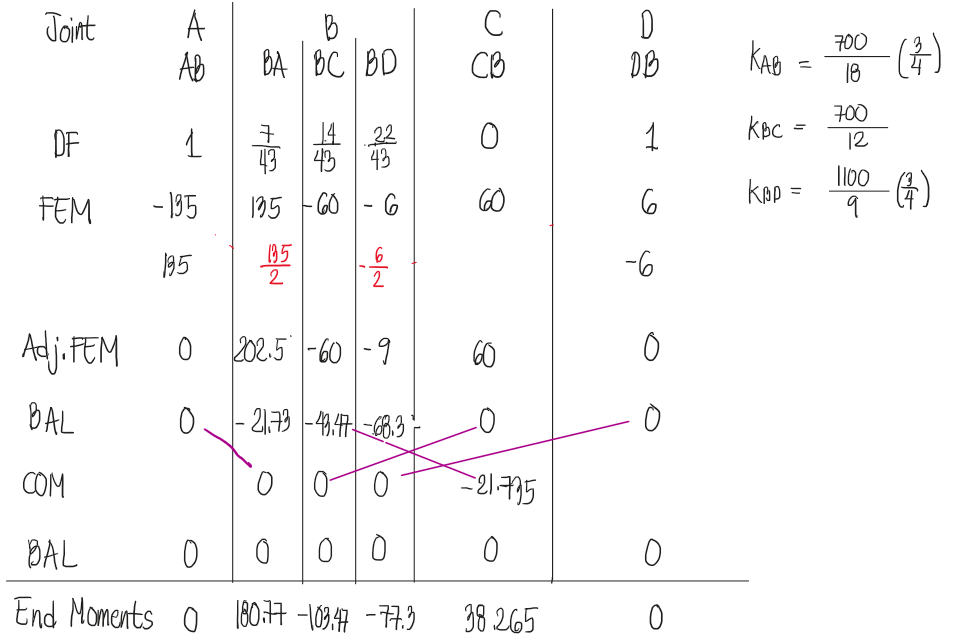 Joint A B C D
AB BA BC BD CB DB
DF 1 7/43 14/43 22/43 0 1
FEM -135 135 -60 -6 60 6
135 135/2 -6/2 -6
Adj.FEM 0 202.5 -60 -9 60 0
BAL 0 -21.73 -43.47 -68.3 0 0
COM 0 0 0 -21.735
BAL 0 0 0 0 0 0
End Moments 0 180.77 -103.47 -77.3 38.265 0
KAB = 700/18 (3/4)
KBC = 700/12
KBD = 1100/9 (3/4)